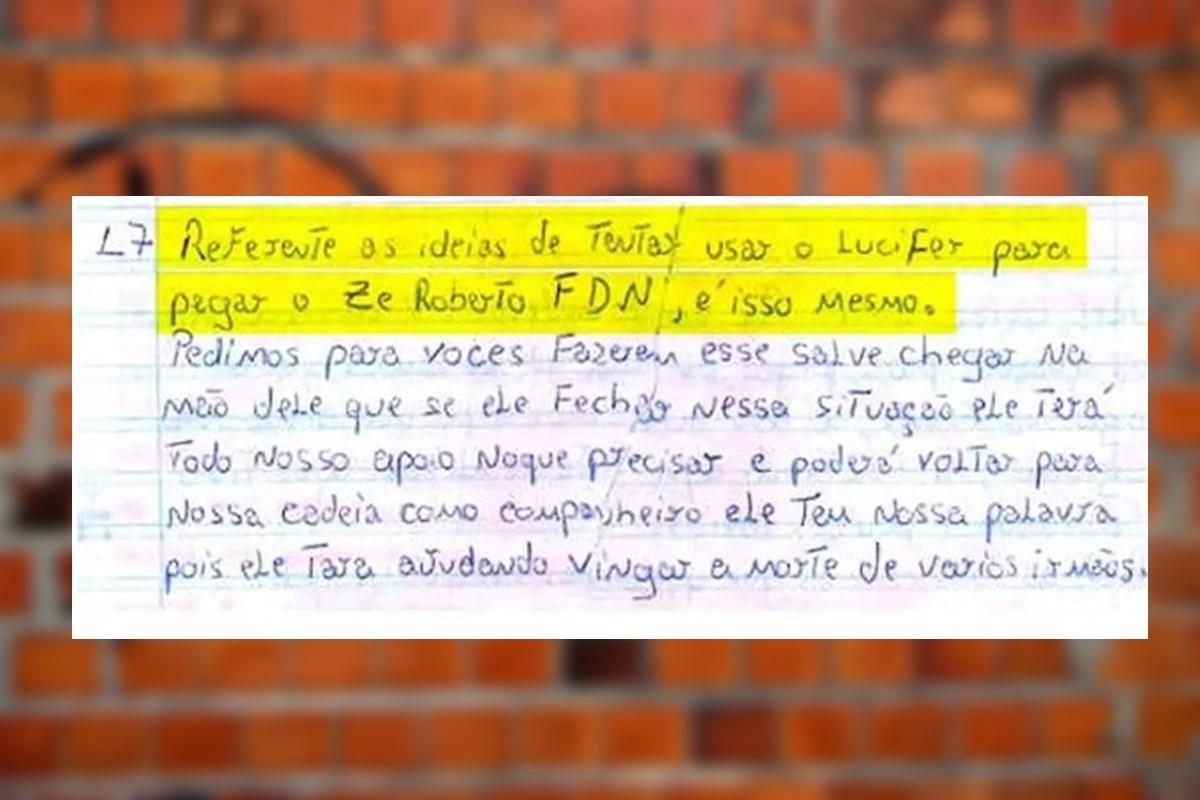 L7 Referente as ideias de Tentar usar o Lucifer para
pegar o Ze Roberto FDN, é isso mesmo.
Pedimos para voces Fazerem esse salve chegar na
mão dele que se ele Fechar nessa situação ele Terá
Todo nosso apoio noque precisar e poderá voltar para
nossa cadeia como companheiro ele Tem nossa palavra
pois ele Tara ajudando vingar a morte de varios irmãos.